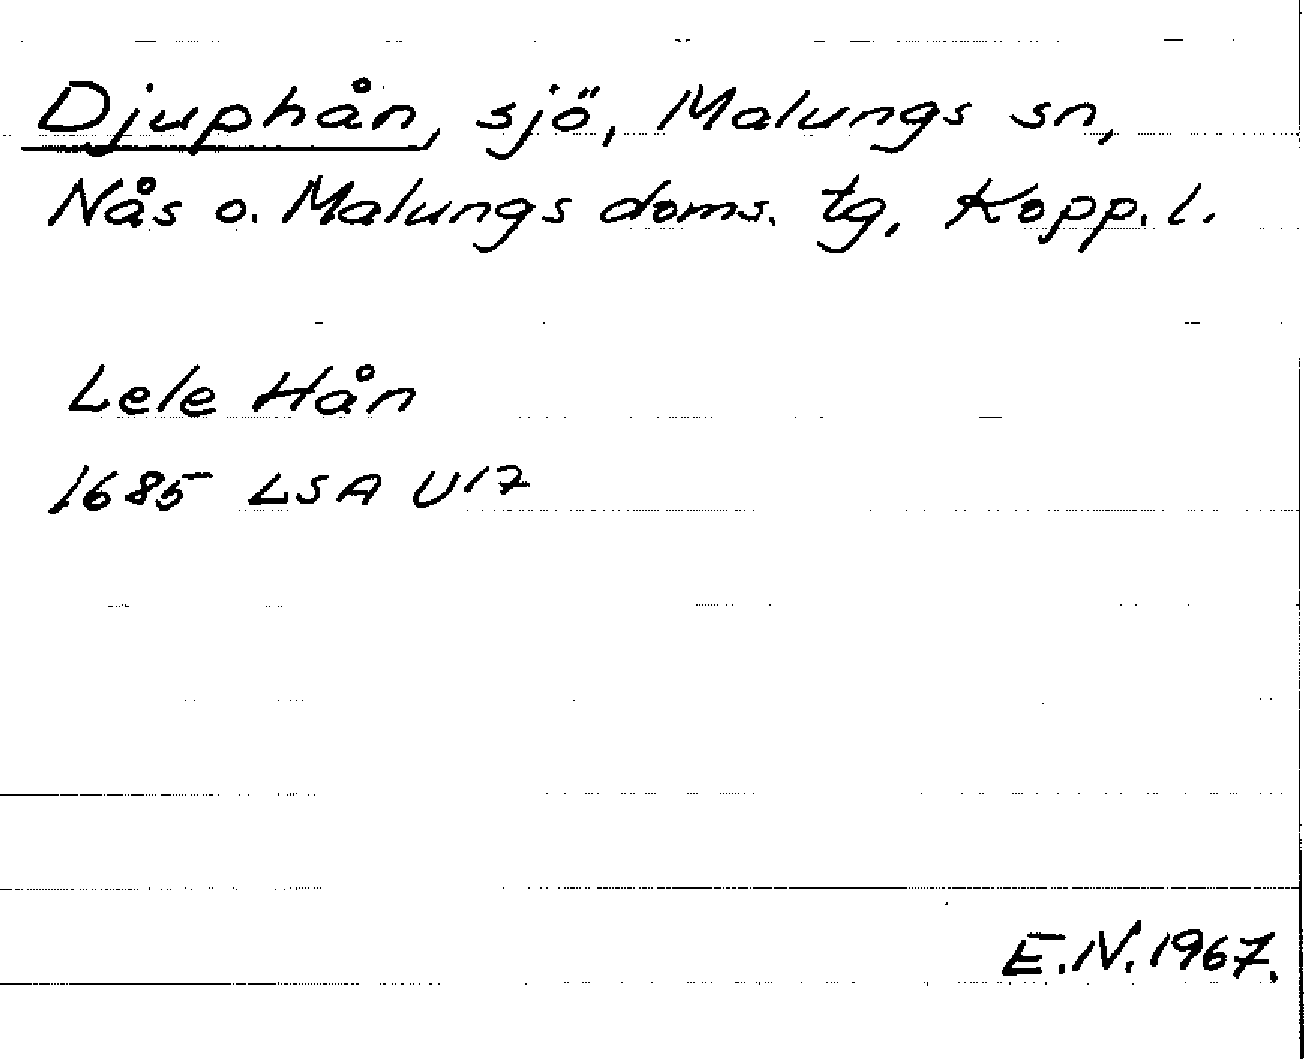 Djuphån, sjö, Malungs sn,
Nås o. Malungs doms. tg, Kopp. l.
Lele Hån
1685 LSA U17
E.N. 1967.